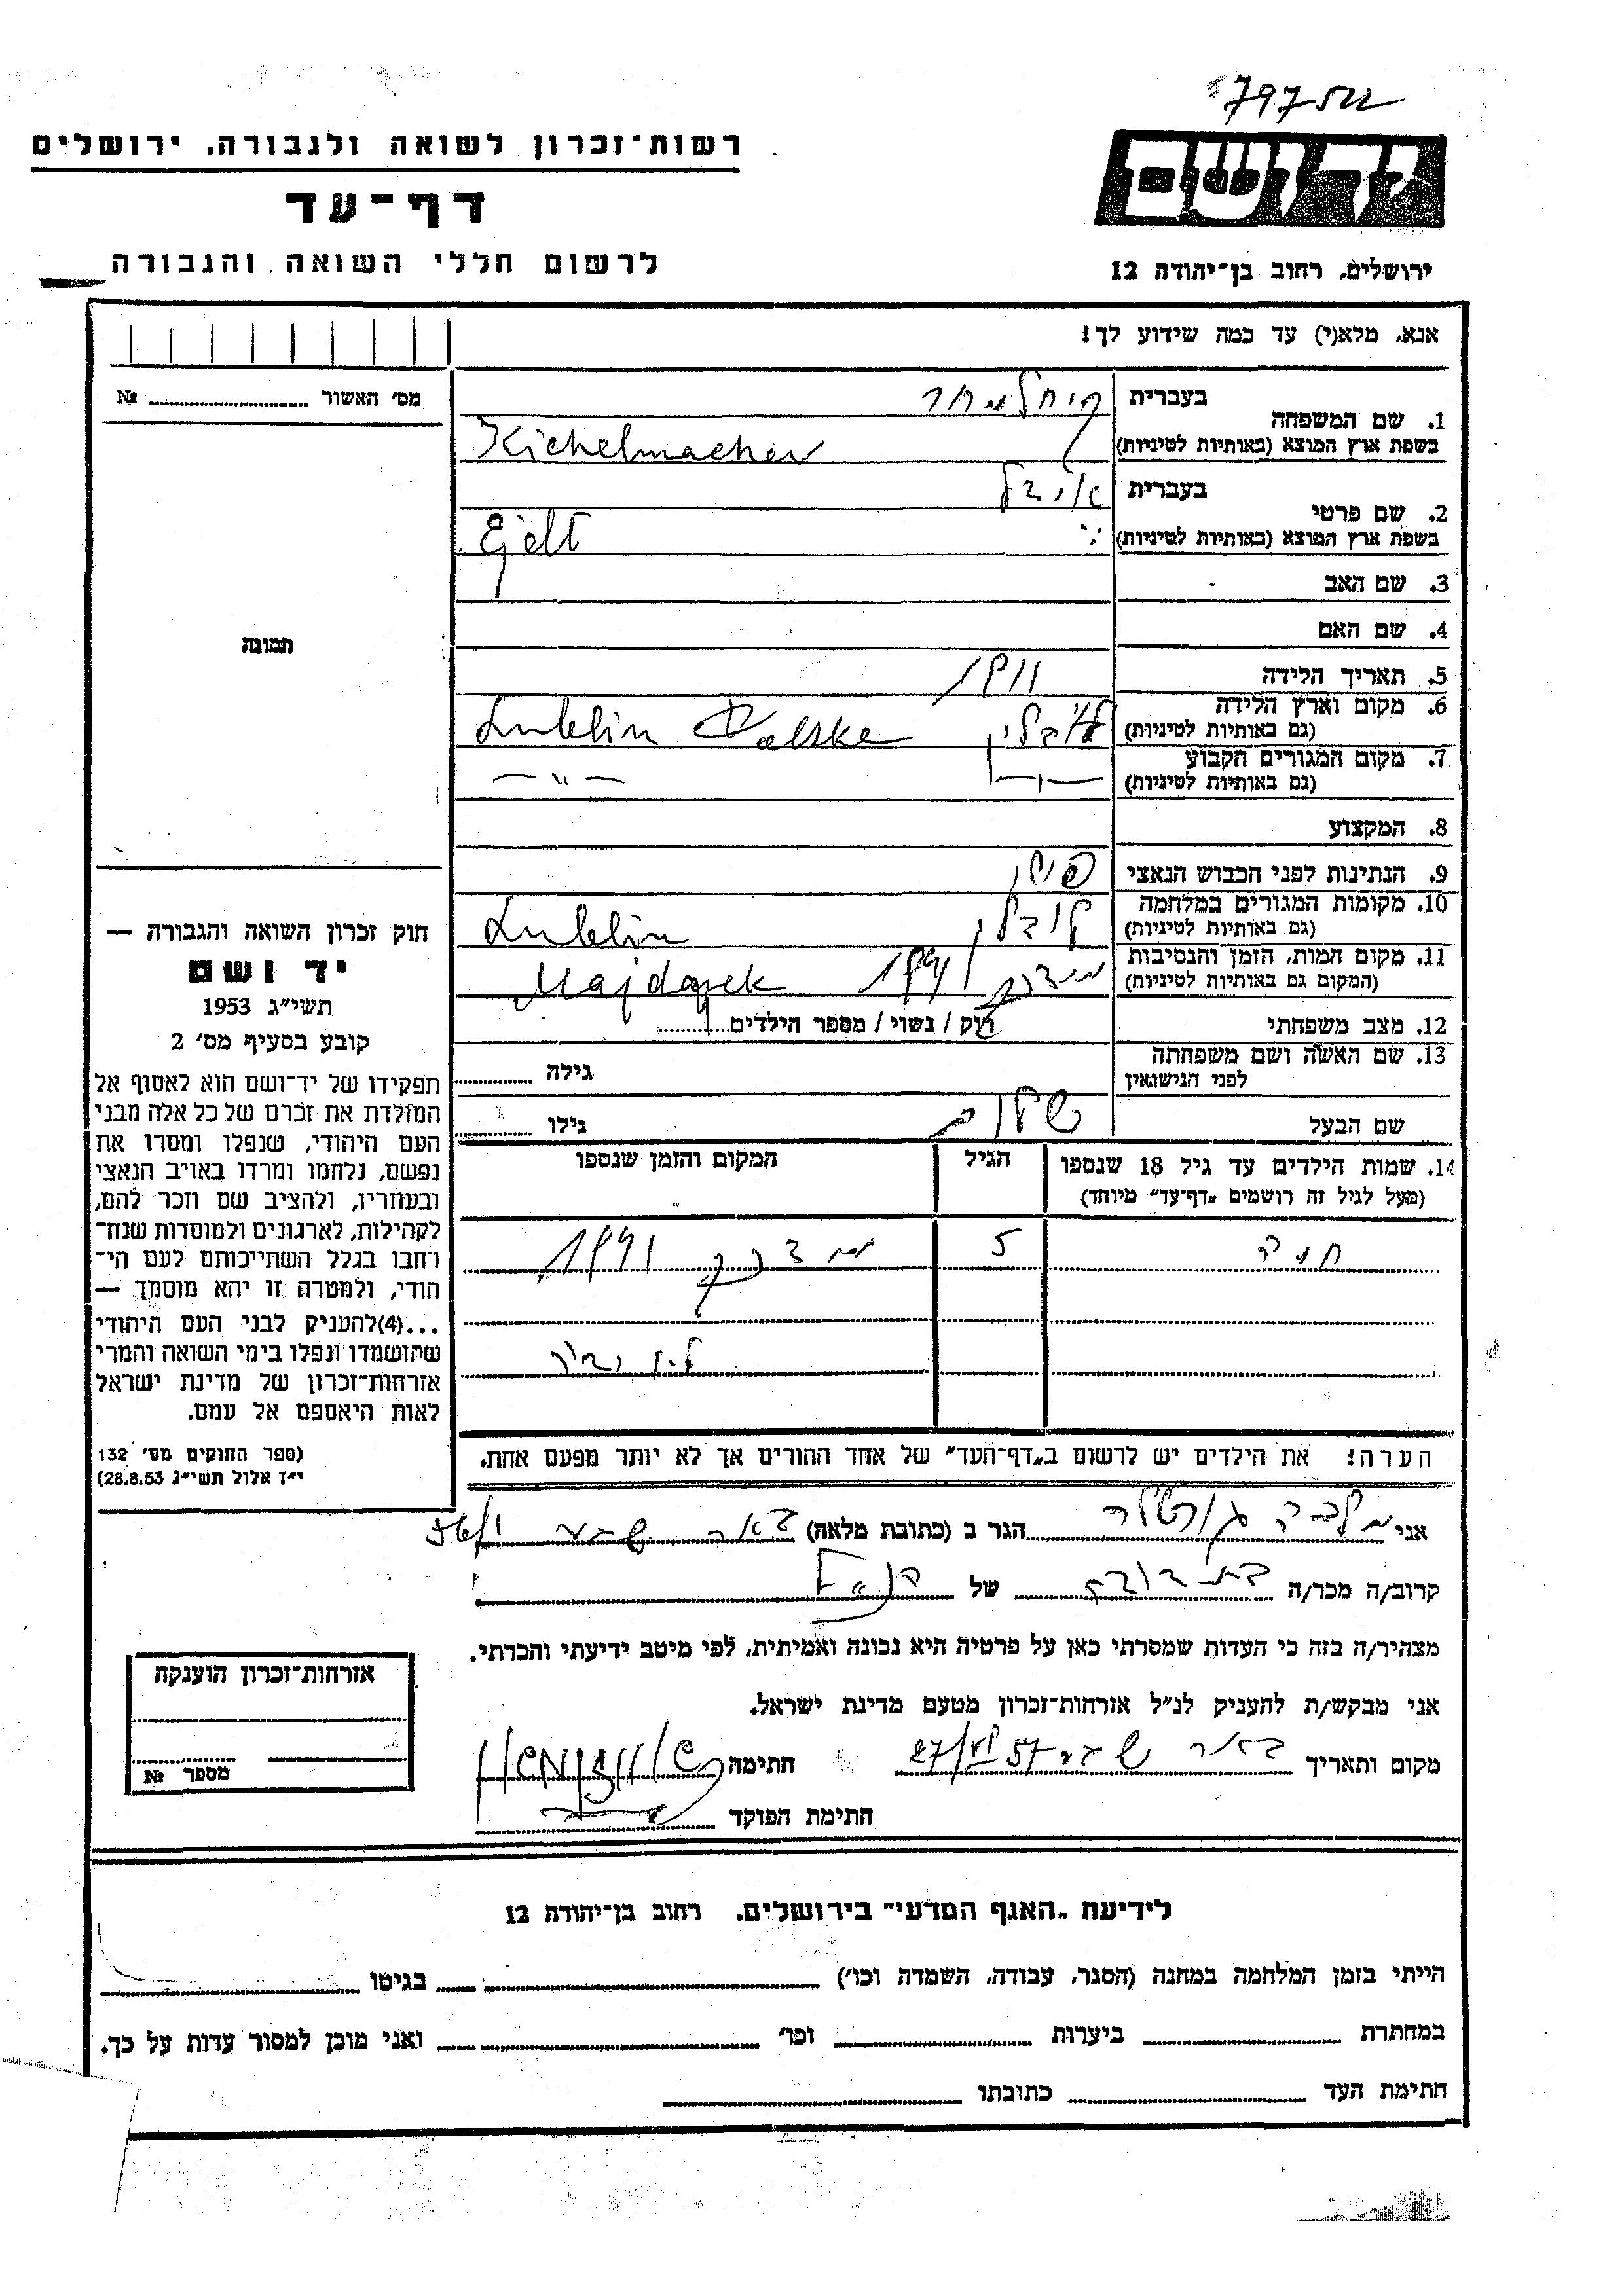 רשות־זכרון לשואה ולגבורה, ירושלים
דף־עד
לרשום חללי השואה והגבורה
יד ושם
ירושלים, רחוב בן־יהודה 12
אנא, מלא(י) עד כמה שידוע לך!
מס' האשור № 
תמונה
1. שם המשפחה
בעברית קיחלמכר
בשפת ארץ המוצא (באותיות לטיניות) Kichelmacher
2. שם פרטי
בעברית
בשפת ארץ המוצא (באותיות לטיניות)
3. שם האב
4. שם האם
5. תאריך הלידה 1911
6. מקום וארץ הלידה לובלין Lublin Polske
(גם באותיות לטיניות)
7. מקום המגורים הקבוע — " —
(גם באותיות לטיניות)
8. המקצוע
9. הנתינות לפני הכבוש הנאצי
10. מקומות המגורים במלחמה לובלין Lublin
(גם באותיות לטיניות)
11. מקום המות, הזמן והנסיבות מידנק 1941 Majdanek
(המקום גם באותיות לטיניות)
12. מצב משפחתי רוק / נשוי / מספר הילדים
13. שם האשה ושם משפחתה גילה
לפני הנישואין
שם הבעל שלום גילו
14. שמות הילדים עד גיל 18 שנספו הגיל המקום והזמן שנספו
(מעל לגיל זה רושמים "דף־עד" מיוחד)
חיה 5 מידנק 1941
הערה! את הילדים יש לרשום ב"דף־העד" של אחד ההורים אך לא יותר מפעם אחת.
חוק זכרון השואה והגבורה —
יד ושם
תשי"ג 1953
קובע בסעיף מס' 2
תפקידו של יד־ושם הוא לאסוף אל
המולדת את זכרם של כל אלה מבני
העם היהודי, שנפלו ומסרו את
נפשם, נלחמו ומרדו באויב הנאצי
ובעוזריו, ולהציב שם וזכר להם,
לקהילות, לארגונים ולמוסדות שנח־
רחבו בגלל השתייכותם לעם הי־
הודי, ולמטרה זו יהא מוסמך —
...(4)להעניק לבני העם היהודי
שהושמדו ונפלו בימי השואה והמרי
אזרחות־זכרון של מדינת ישראל
לאות היאספם אל עמם.
(ספר החוקים מס' 132
י"ז אלול תשי"ג 28.8.53)
אני מלכה הגר ב (כתובת מלאה) באר שבע
קרוב/ה מכר/ה בת דודה של הנ"ל
מצהיר/ה בזה כי העדות שמסרתי כאן על פרטיה היא נכונה ואמיתית, לפי מיטב ידיעתי והכרתי.
אני מבקש/ת להעניק לנ"ל אזרחות־זכרון מטעם מדינת ישראל.
מקום ותאריך באר שבע 27/VI 57 חתימה
חתימת הפוקד
אזרחות־זכרון הוענקה
מספר №
לידיעת "האגף המדעי" בירושלים, רחוב בן־יהודה 12
הייתי בזמן המלחמה במחנה (הסגר, עבודה, השמדה וכו') בגיטו
במחתרת ביערות וכו' ואני מוכן למסור עדות על כך.
חתימת העד כתובתו